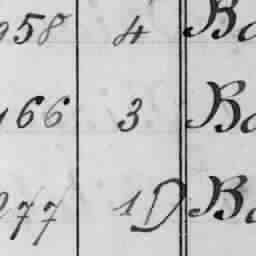 58 4 Ba
66 3 Ba
77 1D Ba